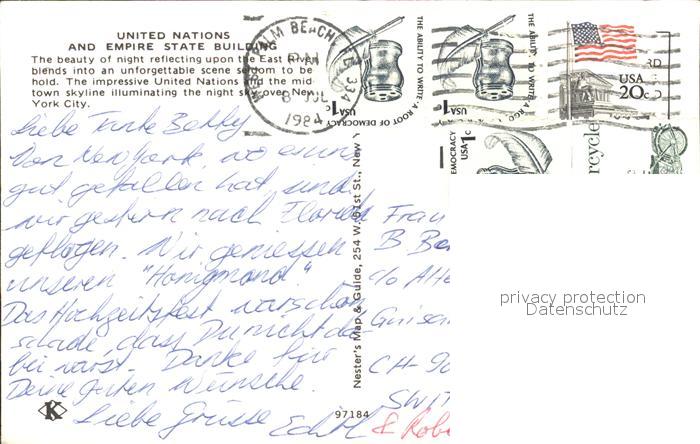 UNITED NATIONS
AND EMPIRE STATE BUILDING
The beauty of night reflecting upon the East River
blends into an unforgettable scene seldom to be
hold. The impressive United Nations and the mid
town skyline illuminating the night sky over New
York City.
PALM BEACH
PM
8 JUL
1984
334
THE ABILITY TO WRITE·A ROOT OF DEMOCRACY
USA 1c
THE ABILITY TO WRITE·A ROO
USA 1c
USA
20c
EMOCRACY
USA 1c
rcycle
Liebe Tante Betty
Von New York, wo es uns
gut gefallen hat, sind
wir gestern nach Florida
geflogen. Wir geniessen
unseren "Honigmond".
Das Hochzeitsfest war schön
schade, dass Du nicht da-
bei warst. Danke für
Deine guten Wünsche.
Liebe Grüsse Edith & Robe
Nester's Map & Guide, 254 W. 61st St., New Y
Frau
B. Be
c/o Alte
CH-90
SWIT
K
97184
privacy protection
Datenschutz